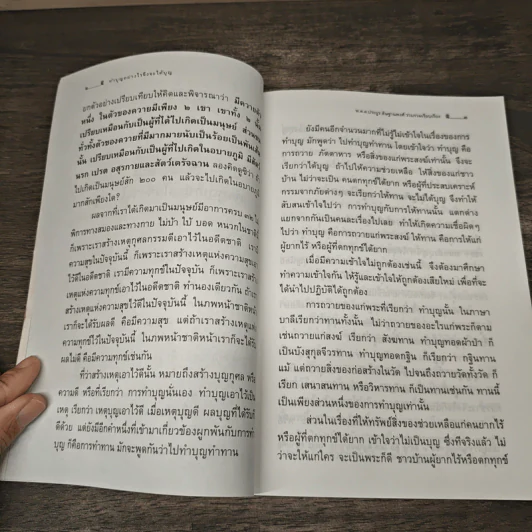 ๒ ทำบุญอย่างไรจึงจะได้บุญ
ยกตัวอย่างเปรียบเทียบให้คิดและพิจารณาว่า มีควายตัว
หนึ่ง ในตัวของควายมีเพียง ๒ เขา เขาทั้ง ๒ นั้น
เปรียบเหมือนกับเป็นผู้ที่ได้ไปเกิดเป็นมนุษย์ ส่วนขน
ทั่วทั้งตัวของควายที่มีมากมายนับเป็นร้อยเป็นพันเส้น
นั้น เปรียบเหมือนกับเป็นผู้ที่ไปเกิดในอบายภูมิ มีสัตว์
นรก เปรต อสุรกายและสัตว์เดรัจฉาน ลองคิดดูซิว่า
ไปเกิดเป็นมนุษย์สัก ๒๐๐ คน แล้วจะไปเกิดในอบายภูมิ
มากสักเพียงใด?
ผลจากที่เราได้เกิดมาเป็นมนุษย์มีอาการครบ ๓๒
พิการทางสมองและทางกาย ไม่บ้า ใบ้ บอด หนวกในชาตินี้
ก็เพราะเราสร้างเหตุกุศลกรรมดีเอาไว้ในอดีตชาติ เรามี
ความสุขในปัจจุบันนี้ ก็เพราะเราสร้างเหตุแห่งความสุขเอา
ไว้ในอดีตชาติ เรามีความทุกข์ในปัจจุบัน ก็เพราะเราสร้าง
เหตุแห่งความทุกข์เอาไว้ในอดีตชาติ ทำนองเดียวกัน ถ้าเรา
สร้างเหตุแห่งความสุขไว้ดีในปัจจุบันนี้ ในภพหน้าชาติหน้า
เราก็จะได้รับผลดี คือมีความสุข แต่ถ้าเราสร้างเหตุ
ไว้ในปัจจุบันนี้ ในภพหน้าชาติหน้าเราก็จะได้รับ
ผลไม่ดี คือมีความทุกข์เช่นกัน
ที่ว่าสร้างเหตุเอาไว้ดีนั้น หมายถึงสร้างบุญกุศล หรือ
ความดี หรือที่เรียกว่า การทำบุญนั่นเอง ทำบุญเอาไว้เป็น
เหตุ เรียกว่า เหตุบุญเอาไว้ดี เมื่อเหตุบุญดี ผลบุญที่ได้รับก็
ดีด้วย แต่ยังมีอีกคำหนึ่งที่เข้ามาเกี่ยวข้องผูกพันกับการทำ
บุญ ก็คือการทำทาน มักจะพูดกันว่าไปทำบุญทำทาน
๓
ยังมีคนอีกจำนวนมากที่ไม่รู้ไม่เข้าใจในเรื่องของการ
ทำบุญ มักพูดว่า ไปทำบุญทำทาน โดยเข้าใจว่า ทำบุญ คือ
การถวาย ภัตตาหาร หรือสิ่งของแก่พระสงฆ์เท่านั้น จึงจะ
เรียกว่าได้บุญ ถ้าไปให้ความช่วยเหลือ ให้สิ่งของแก่ชาว
บ้าน ไม่ว่าจะเป็น คนตกทุกข์ได้ยาก หรือผู้ที่ประสบเคราะห์
กรรมจากภัยต่างๆ จะเรียกว่าการให้ทาน จะไม่ได้บุญ จึงทำให้
สับสนเข้าใจไปว่า การทำบุญกับการให้ทานนั้น แตกต่าง
แยกจากกันเป็นคนละเรื่องไปเลย ทำให้เกิดความเชื่อผิดๆ
ไปว่า ทำบุญ คือการถวายแก่พระสงฆ์ ให้ทาน คือการให้แก่
ผู้ยากไร้ หรือผู้ที่ตกทุกข์ได้ยาก
เมื่อมีความเข้าใจไม่ถูกต้องเช่นนี้ จึงต้องมาศึกษา
ทำความเข้าใจกัน ให้รู้และเข้าใจให้ถูกต้องเสียใหม่ เพื่อที่จะ
ได้นำไปปฏิบัติได้ถูกต้อง
การถวายของแก่พระที่เรียกว่า ทำบุญนั้น ในภาษา
บาลีเรียกว่าทานทั้งนั้น ไม่ว่าถวายของอะไรแก่พระก็ตาม
เช่นถวายแก่สงฆ์ เรียกว่า สังฆทาน ทำบุญทอดผ้าป่า ก็
เป็นบังสุกุลจีวรทาน ทำบุญทอดกฐิน ก็เรียกว่า กฐินทาน
แม้ แต่ถวายสิ่งของก่อสร้างในวัด ไปจนถึงถวายวัดทั้งวัด ก็
เรียก เสนาสนทาน หรือวิหารทาน ก็เป็นทานเช่นกัน ทานนี้
เป็นเพียงส่วนหนึ่งของการทำบุญเท่านั้น
ส่วนในเรื่องที่ให้ทรัพย์สิ่งของช่วยเหลือแก่คนยากไร้
หรือผู้ที่ตกทุกข์ได้ยาก เข้าใจว่าไม่เป็นบุญ ซึ่งที่จริงแล้ว ไม่
ว่าจะให้แก่ใคร จะเป็นพระก็ดี ชาวบ้านผู้ยากไร้หรือตกทุกข์